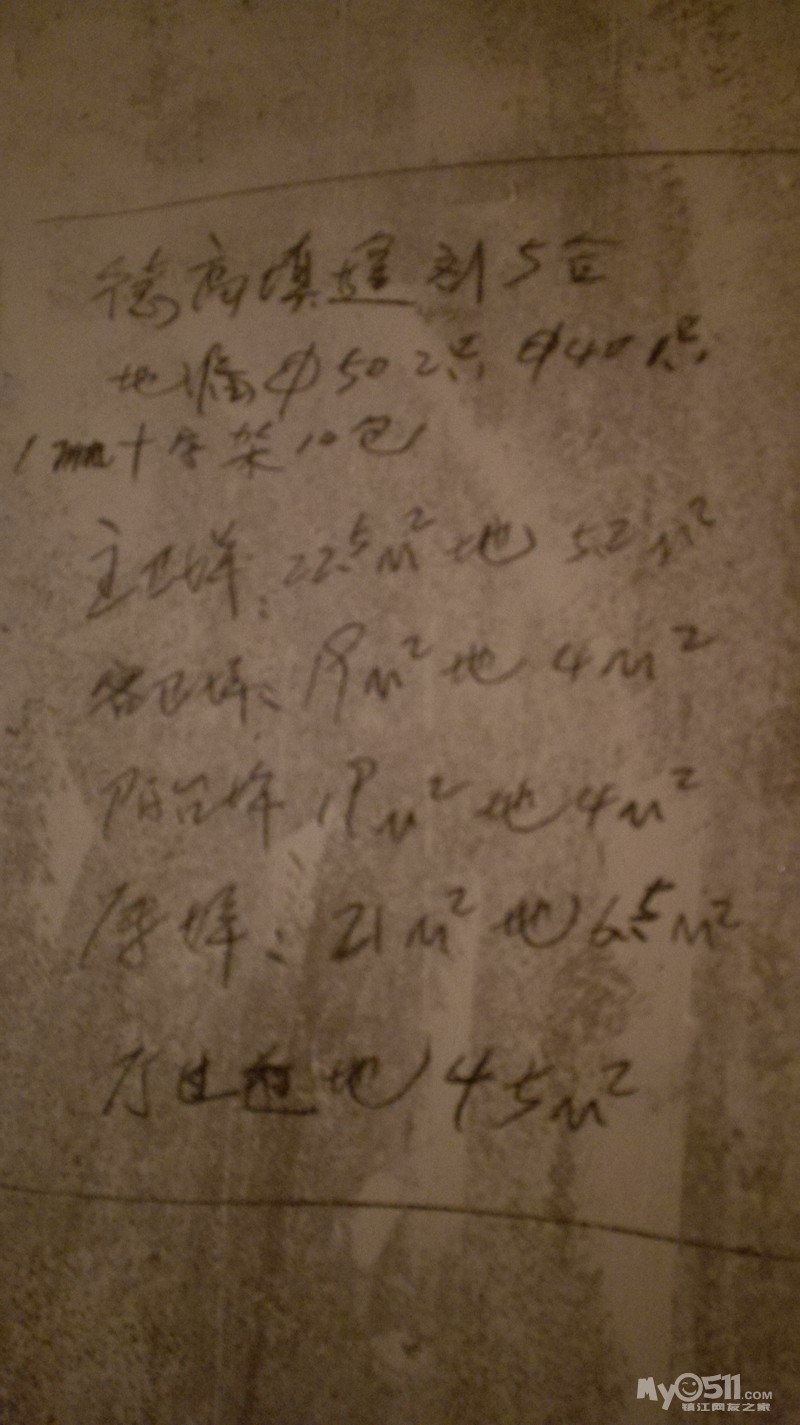 德高填缝剂5盒
地漏φ50 2只 φ40 1只
1mm十字架10包
主卫墙:22.5m² 地 5.2m²
客卫墙:19m² 地 4m²
阳台墙 19m² 地 4m²
厨墙:21m² 地 6.5m²
厅过道地 45m²
My0511.COM
镇江网友之家